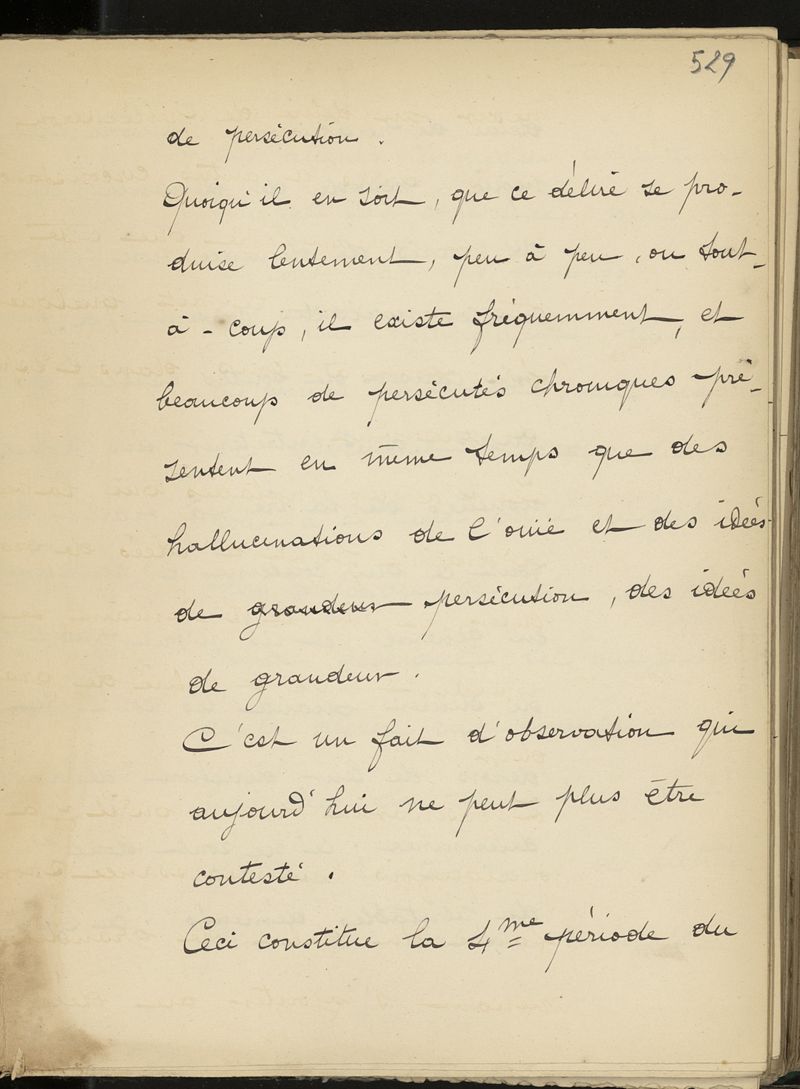 529
de persécution.
Quoiqu'il en soit, que ce délire se pro-
duise lentement, peu à peu, ou tout-
à-coup, il existe fréquemment, et
beaucoup de persécutés chroniques pré-
sentent en même temps que des
hallucinations de l'ouïe et des idées
de grandeur persécution, des idées
de grandeur.
C'est un fait d'observation qui
aujourd'hui ne peut plus être
contesté.
Ceci constitue la 4me période du